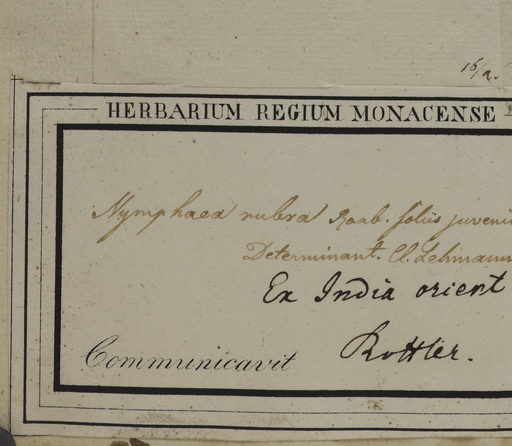 16/a.
HERBARIUM REGIUM MONACENSE
Nymphaea rubra Roxb. foliis juveni
Determinant. Cl. Lehmann
Ex India orient
Communicavit Rottler.